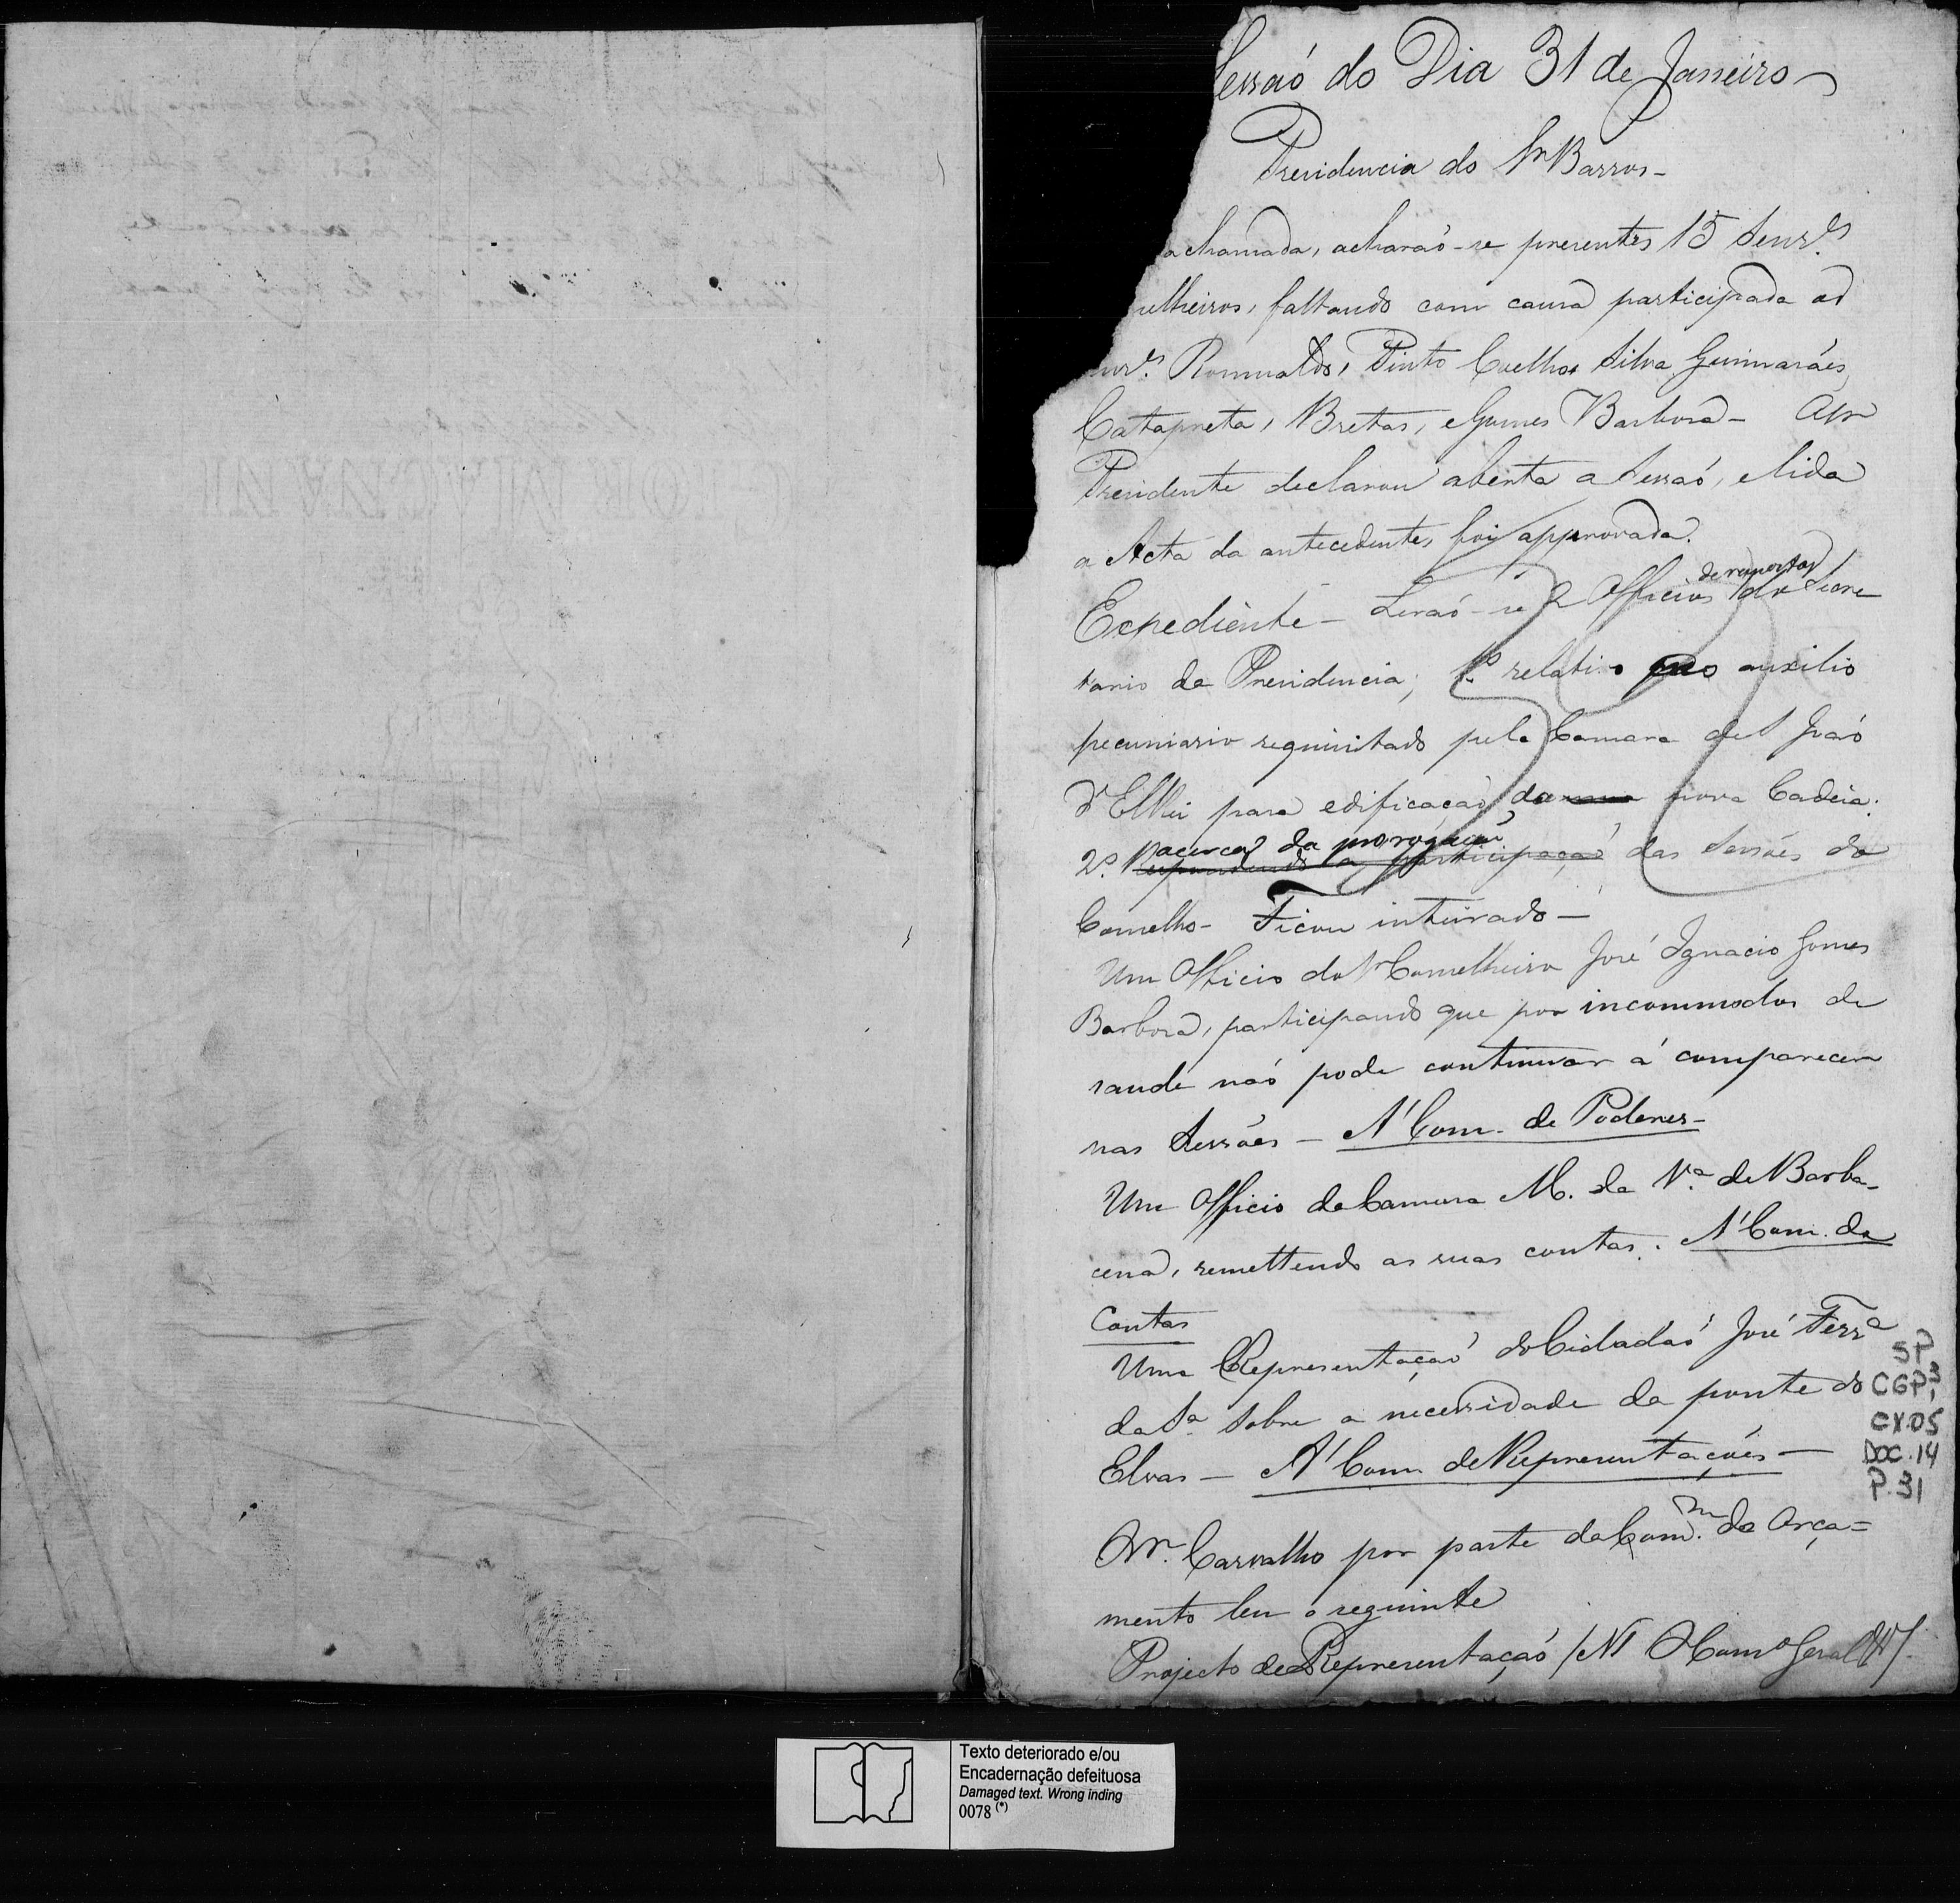 Sessaõ do Dia 31 de Janeiro
Presidencia do Sr Barros -
a chamada, acharaõ-se presentes 15 Senr.es
selheiros, faltando com causa participada os
nr.es Romualdo, Pinto Coelho, Silva Guimarães,
Catapreta, Bretas, e Gomes Barbosa - O Sr
Presidente declarou aberta a Sessaõ, e lida
a Acta da antecedente, foi approvada.
Expediente - Leraõ-se 2 Officios de respostas do Secre
tario da Presidencia; 1.º relativo ao auxilio
pecuniario requisitado pela Camara de S Joaõ
d'ElRei para edificaçaõ da nova Cadeia.
2.º acerca da prorogaçaõ Respondendo a participaçaõ das Sessões do
Conselho - Ficou inteirado -
Um Officio do Sr Conselheiro José Ignacio Gomes
Barbosa, participando que por incommodos de
saude naõ pode continuar á comparecer
nas Sessões - A' Com. de Poderes -
Um Officio da Camara M. da V.a de Barba-
cena, remettendo as suas contas. A' Com. de
Contas
Uma Representaçaõ do Cidadaõ José Ferr.a
da S.a sobre a necessidade da ponte do
Elvas - A' Com de Representações -
SP
CGP 3
1
CX.05
DOC.14
P.31
O Sr. Carvalho por parte da Com.m de Orça=
mento leu o seguinte
Projecto de Representaçaõ
Texto deteriorado e/ou
Encadernação defeituosa
Damaged text. Wrong inding
0078 (*)